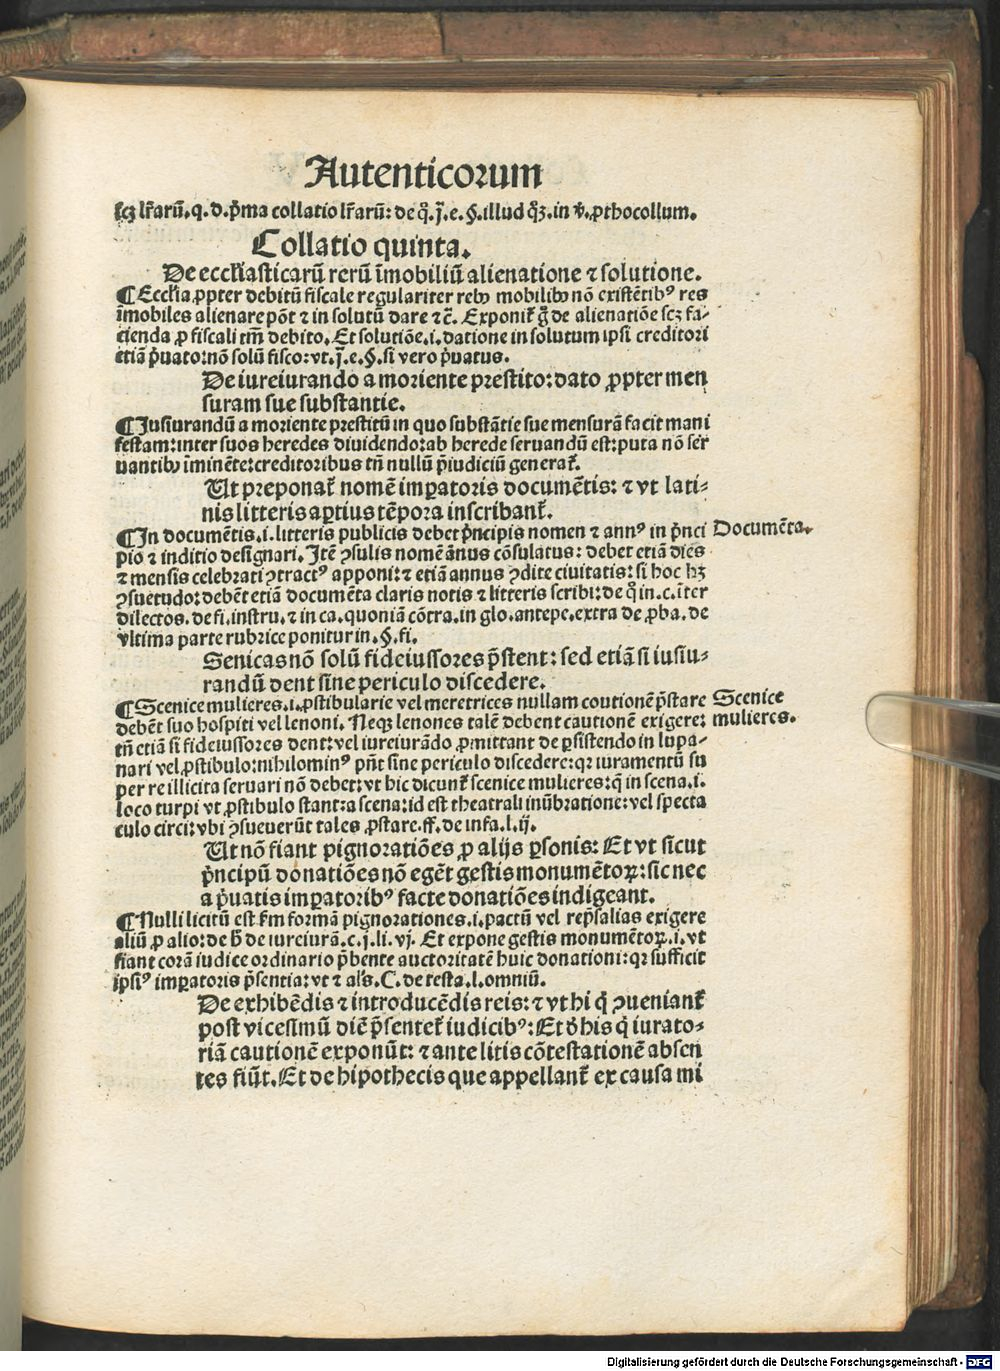 Autenticorum
scꝫ lr̄arū.q.d.p̄ma collatio lr̄arū: de qͦ.j̄.e.§.illud qꝫ.in v̄.ꝓthocollum.
Collatio quinta.
De eccl̄iasticarū rerū īmobiliū alienatione ⁊ solutione.
¶ Eccl̄ia ꝓpter debitū fiscale regulariter rebꝰ mobilibꝰ nō existētibꝰ res
īmobiles alienare pōt ⁊ in solutū dare ⁊ c̄. Exponit̄ g̊ de alienatiōe scꝫ fa⸗
cienda ꝓ fiscali tm̄ debito. Et solutiōe.i.datione in solutum ipsi creditori
etiā p̄uato: nō solū fisco: vt.j̄.e.§.si vero p̄uatus.
De iureiurando a moriente prestito: dato ꝓpter men
suram sue substantie.
¶ Jusiurandū a moriente prestitū in quo substātie sue mensurā facit mani
festam: inter suos heredes diuidendo: ab herede seruandū est: puta nō ser̄
uantibꝰ īminēte: creditoribus tn̄ nullū p̄iudiciū generat̄.
Ut preponat̄ nomē imꝑatoris documētis: ⁊ vt lati⸗
nis litteris aꝑtius tēpora inscribant̄.
¶ In documētis.i.litteris publicis debet p̄ncipis nomen ⁊ annꝰ in p̄nci
Documēta.
pio ⁊ inditio designari. Itē ꝯsulis nomē ānus cōsulatus: debet etiā dies
⁊ mensis celebrati ꝯtractꝰ apponi: ⁊ etiā annus ꝯdite ciuitatis: si hoc hꝫ
ꝯsuetudo: debēt etiā documēta claris notis ⁊ litteris scribi: de qͦ in.c.iter
dilectos.de fi.instru.⁊ in ca.quoniā cōtra.in glo.antepe.extra de ꝓba.de
vltima parte rubrice ponitur in.§.fi.
Senicas nō solū fideiussores p̄stent: sed etiā si iusiu⸗
randū dent sine periculo discedere.
¶ Scenice mulieres.i.ꝓstibularie vel meretrices nullam coutionē p̄stare
Scenice
debēt suo hospiti vel lenoni. Neqꝫ lenones talē debent cautionē exigere:
mulieres.
tn̄ etiā si fideiussores dent: vel iureiurādo ꝓmittant de ꝑsistendo in lupa⸗
nari vel ꝓstibulo: nihilominꝰ pn̄t sine periculo discedere: qꝛ iuramentū su
per re illicita seruari nō debet: vt hic dicunt̄ scenice mulieres: q̄ in scena.i.
loco turpi vt ꝓstibulo stant: a scena: id est theatrali inūbratione: vel specta
culo circi: vbi ꝯsueuerūt tales ꝓstare.ff.de infa.l.ij.
Ut nō fiant pignoratiōes ꝓ alijs ꝑsonis: Et vt sicut
p̄ncipū donatiōes nō egēt gestis monumētoꝝ: sic nec
a p̄uatis imꝑatoribꝰ facte donatiōes indigeant.
¶ Nulli licitū est s̄m formā pignorationes.i.pactū vel rep̄salias exigere
aliū ꝓ alio: de h̄ de iureiurā.c.j.li.vj. Et expone gestis monumētoꝝ.i.vt
fiant corā iudice ordinario p̄bente auctoritatē huic donationi: qꝛ sufficit
ipsiꝰ imꝑatoris p̄sentia: vt ⁊ al's.C.de testa.l.omniū.
De exhibēdis ⁊ introducēdis reis: ⁊ vt hi q̇ ꝯueniant̄
post vicesimū diē p̄sentet̄ iudicibꝰ: Et d̄ his q̇ iurato⸗
riā cautionē exponūt: ⁊ ante litis cōtestationē absen
tes fiūt. Et de hipothecis que appellant̄ ex causa mi
Digitalisierung gefördert durch die Deutsche Forschungsgemeinschaft - DFG